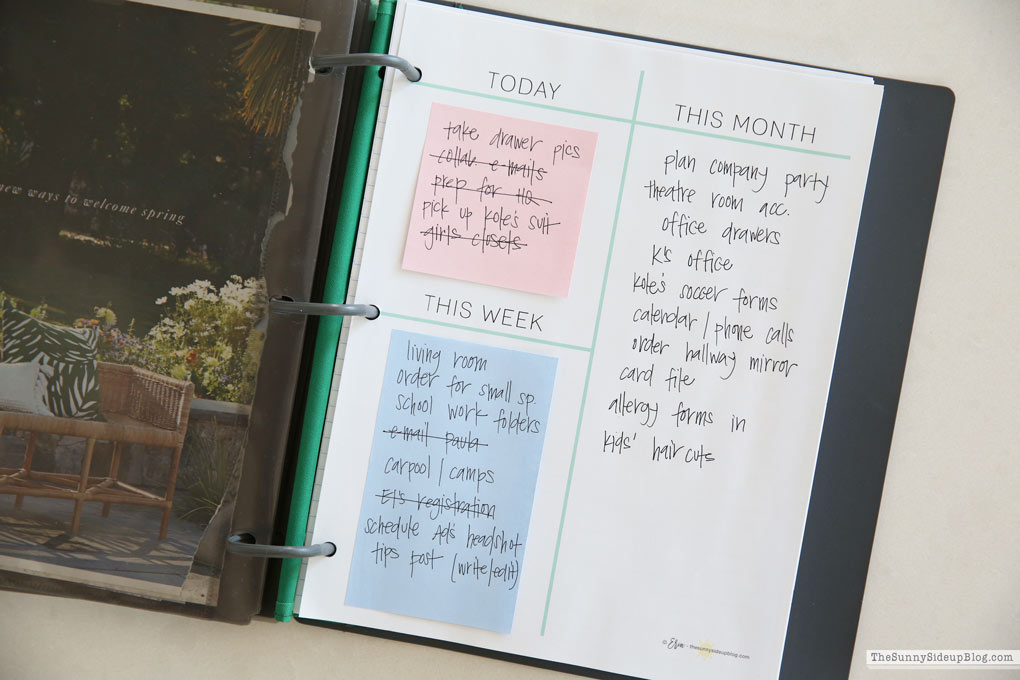 new ways to welcome spring
TODAY
take drawer pics
collab. e-mails
prep for HQ
pick up kole's suit
girls closets
THIS WEEK
living room
order for small sp.
school work folders
e-mail paula
carpool / camps
El's registration
schedule Ad's headshot
tips post (write/edit)
THIS MONTH
plan company party
theatre room acc.
office drawers
K's office
kole's soccer forms
calendar / phone calls
order hallway mirror
card file
allergy forms in
kids' haircuts
© Erin - thesunnysideupblog.com
TheSunnySideupBlog.com